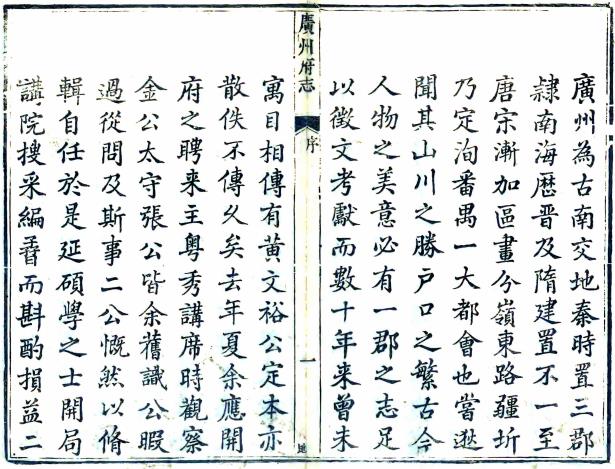 廣州為古南交地秦時置三郡
隷南海歷晉及隋建置不一至
唐宋漸加區畫分嶺東路疆圻
乃定洵番禺一大都會也嘗遡
聞其山川之勝戶口之繁古今
人物之美意必有一郡之志足
以徵文考獻而數十年来曾未
廣州府志
序
一
寓目相傳有黃文裕公定本亦
散佚不傳久矣去年夏余應開
府之聘来主粤秀講席時觀察
金公太守張公皆余舊識公暇
過從問及斯事二公慨然以脩
輯自任於是延碩學之士開局
講院搜采編而斟酌損益二